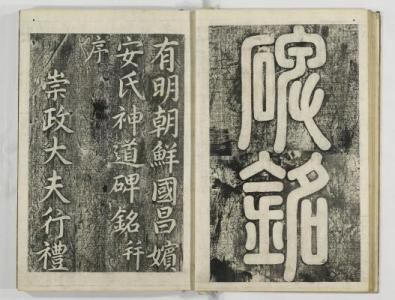 碑銘
有明朝鮮國昌嬪
安氏神道碑銘并
序
崇政大夫行禮